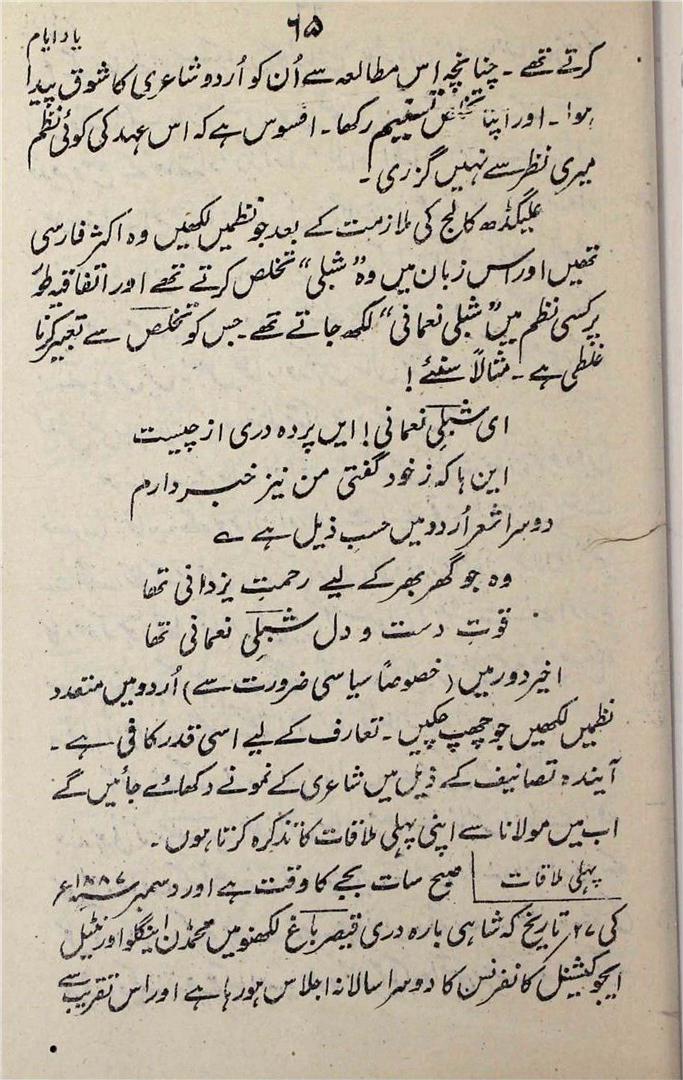 یاد ایام
۶۵
کرتے تھے ۔ چنانچہ اس مطالعہ سے اُن کو اُردو شاعری کا شوق پیدا
ہوا ۔ اور اپنا تخلص تسنیم رکھا ۔ افسوس ہے کہ اس عہد کی کوئی نظم
میری نظر سے نہیں گزری ۔
علیگڈھ کالج کی ملازمت کے بعد جو نظمیں لکھیں وہ اکثر فارسی
تھیں اور اس زبان میں وہ ”شبلی“ تخلص کرتے تھے اور اتفاقیہ طور
پر کسی نظم میں ”شبلی نعمانی“ لکھ جاتے تھے ۔ جس کو تخلص سے تعبیر کرنا
غلطی ہے ۔ مثالاً سنئے !
ای شبلیِ نعمانی ! ایں پردہ دری از چیست
این ہا کہ ز خود گفتی من نیز خبر دارم
دوسرا شعر اُردو میں حسب ذیل ہے ؎
وہ جو گھر بھر کے لیے رحمتِ یزدانی تھا
قوتِ دست و دل شبلیِ نعمانی تھا
اخیر دور میں (خصوصاً سیاسی ضرورت سے) اُردو میں متعدد
نظمیں لکھیں جو چھپ چکیں ۔ تعارف کے لیے اسی قدر کافی ہے ۔
آیندہ تصانیف کے ذیل میں شاعری کے نمونے دکھائے جائیں گے
اب میں مولانا سے اپنی پہلی ملاقات کا تذکرہ کرتا ہوں ۔
پہلی ملاقات صبح سات بجے کا وقت ہے اور دسمبر ۱۸۸۷ء
کی ۲۷ تاریخ کہ شاہی بارہ دری قیصر باغ لکھنو میں محمڈن اینگلو اورنٹیل
ایجوکیشنل کانفرنس کا دوسرا سالانہ اجلاس ہو رہا ہے اور اس تقریب سے